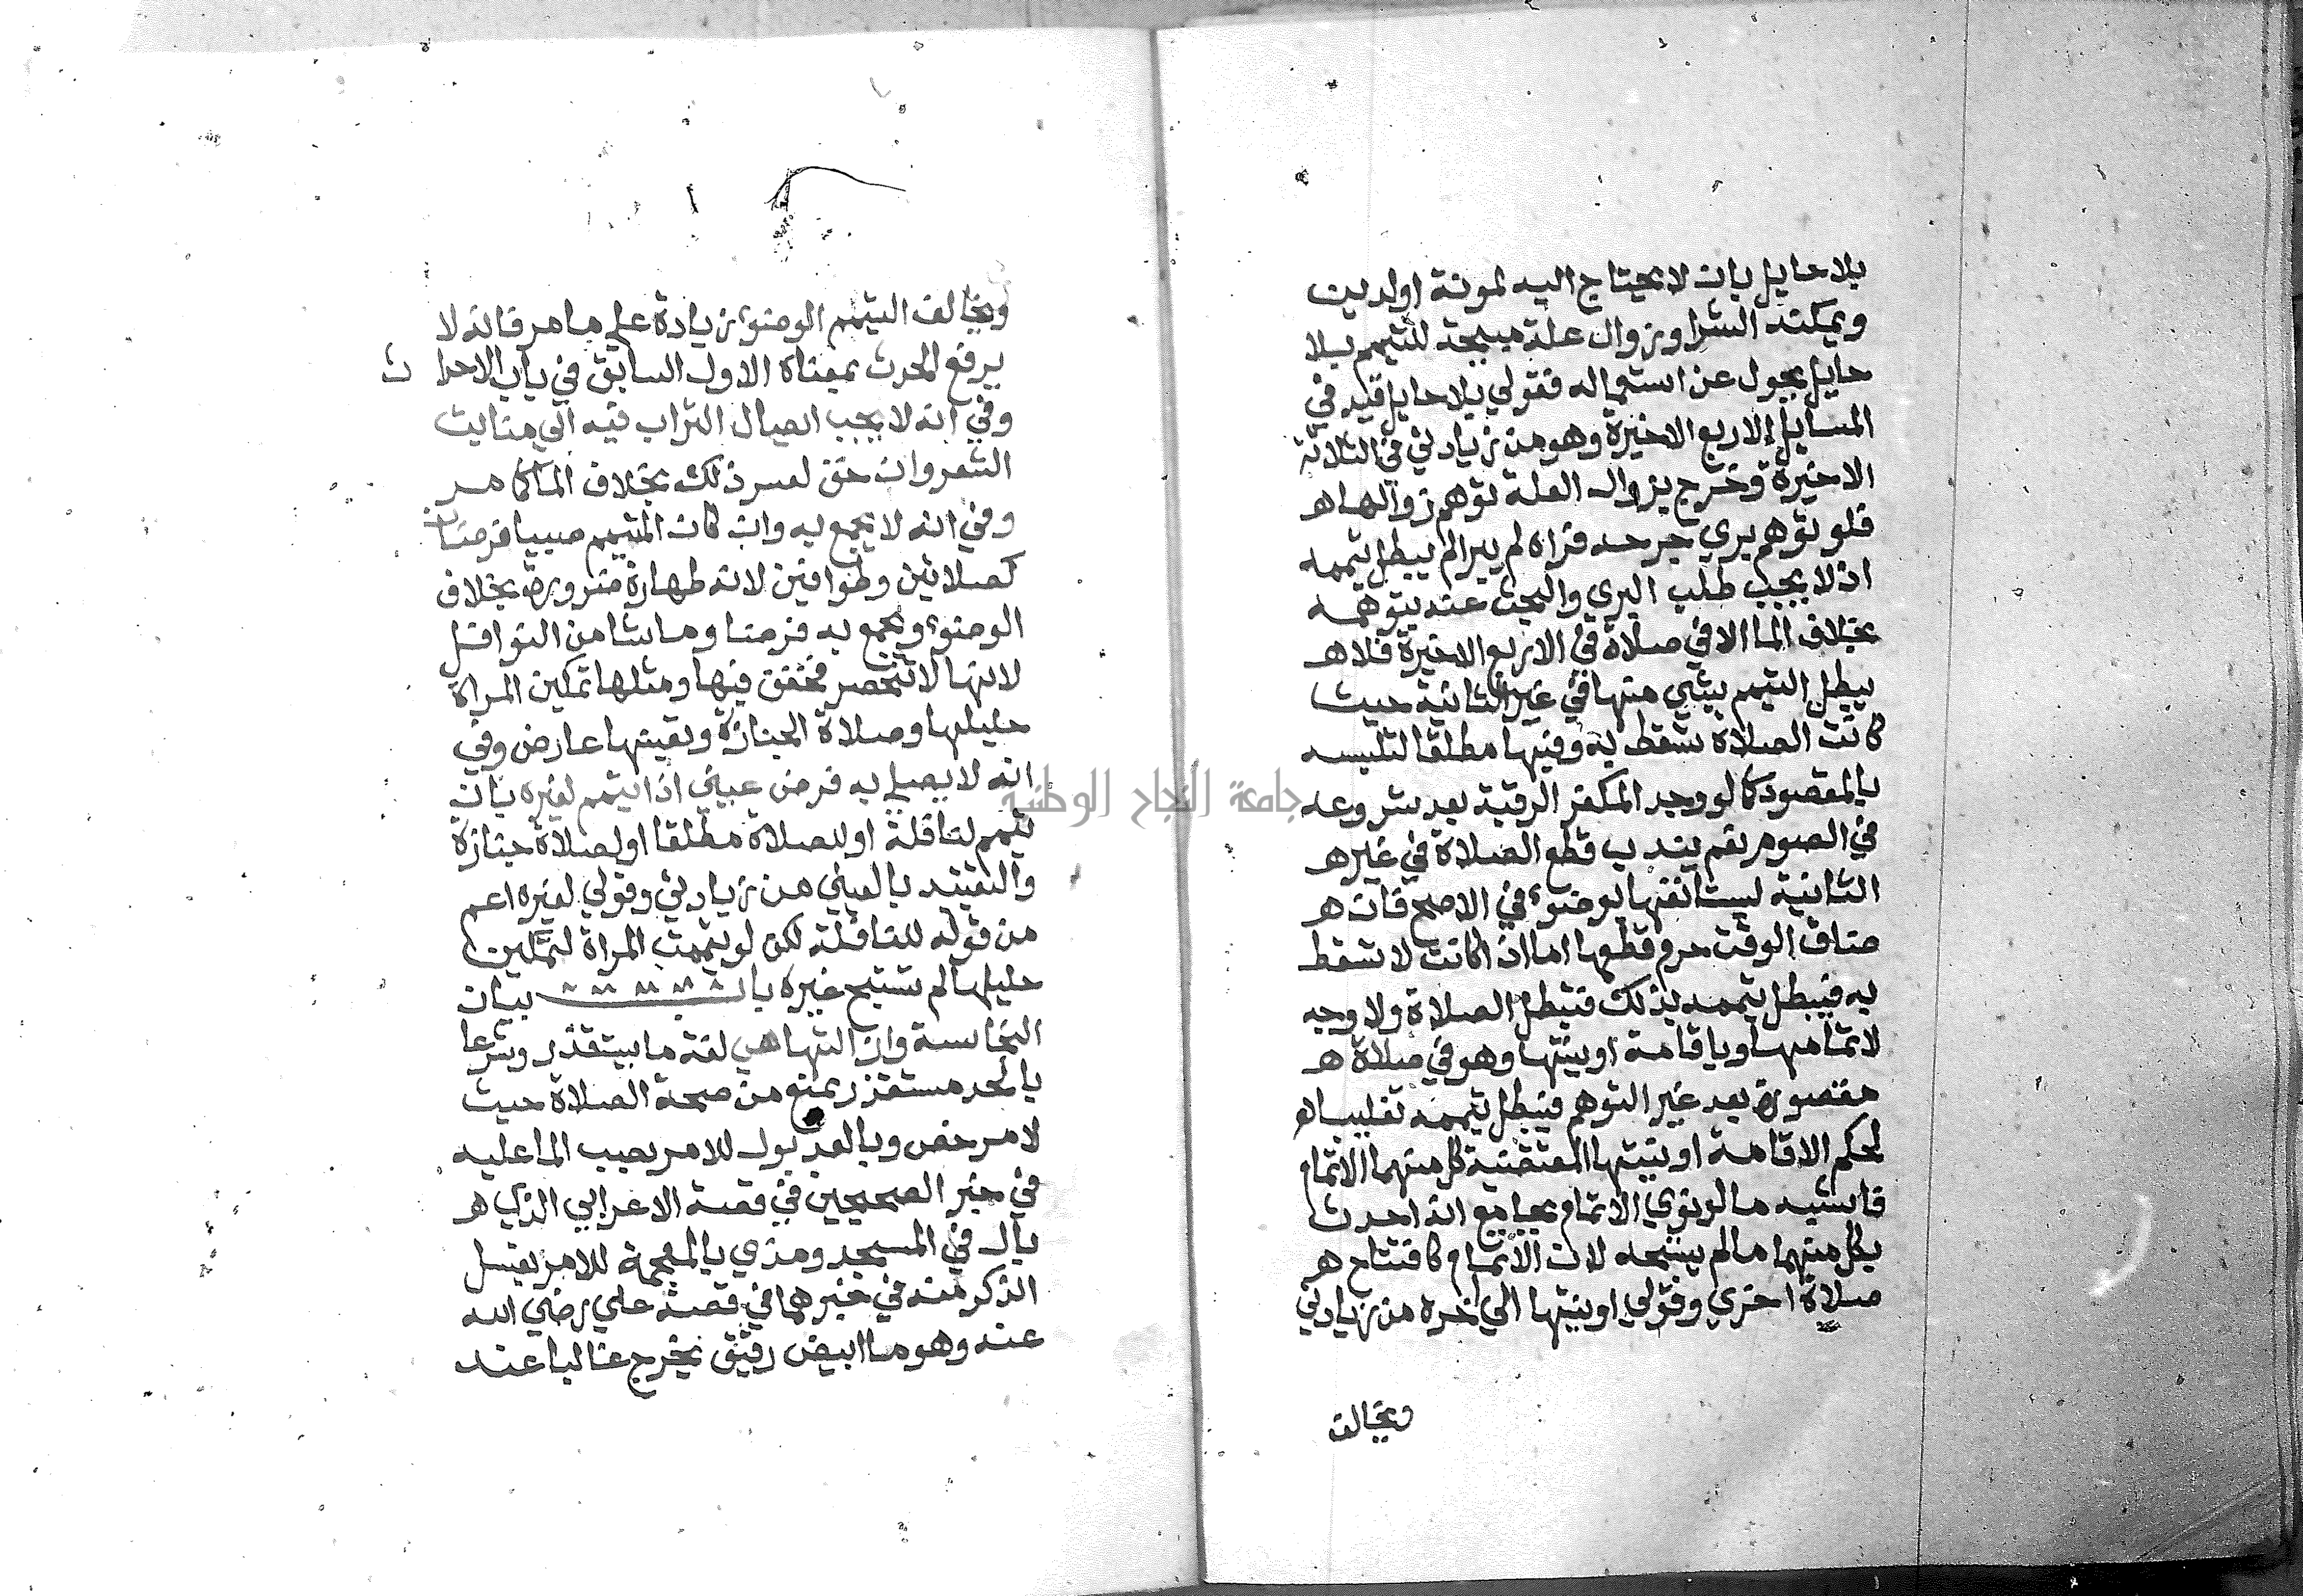 بلا حايل بان لا يحتاج اليه لمونة اولدين
ويمكنه الشرا وزوال علة مبيحة للتيمم بلا
حايل يحول عن استعماله فقولي بلا حايل قيد في
المسايل الاربع الاخيرة وهو من زيادتي في الثلاثة
الاخيرة وخرج بزوال العلة توهم زوالها هـ
فلو توهم بري جرحه فراه لم يبرا لم يبطل تيممه
اذ لا يجب طلب البري والبحث عنه بتوهمه
بخلاف الما الا في صلاة في الاربع الاخيرة فلا هـ
يبطل التيمم بشي منها في غير الثانية حيث
كانت الصلاة تسقط به وفيها مطلقا لتلبسه
بالمقصود كما لو وجد المكفر الرقبة بعد شروعه
في الصوم نعم يندب قطع الصلاة في غير هـ
الثانية ليستانفها بوضوء في الاصح فان هـ
ضاق الوقت حرم قطعها اما اذا كانت لا تسقط
به فيبطل تيممه بذلك فتبطل الصلاة ولا وجه
لاتمامها وباقامة او نيتها وهو في صلاة هـ
مقصورة بعد غير التوهم فيبطل تيممه تغليبا
لحكم الاقامة او نيتها المقتضية كل منهما الاتمام
فاشبه ما لو نوي الاتمام بجامع انه احدث
بكل منهما ما لم يستبحه لان الاتمام كافتتاح هـ
صلاة اخري وقولي او نيتها الي اخره من زيادتي
ويخالف
ويخالف التيمم الوضوء زيادة علي ما مر فانه لا
يرفع الحدث بمعناه الاول السابق في باب الاحداث
وفي انه لا يجب ايصال التراب فيه الي منابت
الشعر وان خف لعسر ذلك بخلاف الما كما مر
وفي انه لا يجمع به وان كان المتيمم صبيا فرضان
كصلاتين وطوافين لانه طهارة ضرورة بخلاف
الوضوء ويجمع به فرضا وما شا من النوافل
لانها لا تنحصر فخفف فيها ومثلها تمكين المراة
حليلها وصلاة الجنازة وتعينها عارض وفي
انه لا يصلي به فرض عيني اذا تيمم لغيره بان
تيمم لنافلة او للصلاة مطلقا او لصلاة جنازة
والتقييد بالعيني من زيادتي وقولي لغيره اعم
من قوله للنافلة لكن لو تيممت المراة لتمكين
حليلها لم تستبح غيره باب بيان
النجاسة وازالتها هي لغة ما يستقذر وشرعا
بالحد مستقذر يمنع من صحة الصلاة حيث
لا مرخص وبالعد بول للامر بصب الما عليه
في خبر الصحيحين في قصة الاعرابي الذي هـ
بال في المسجد ومذي بالمعجمة للامر بغسل
الذكر منه في خبرهما في قصة علي رضي الله
عنه وهو ما ابيض رقيق يخرج غالبا عند
جامعة النجاح الوطنية